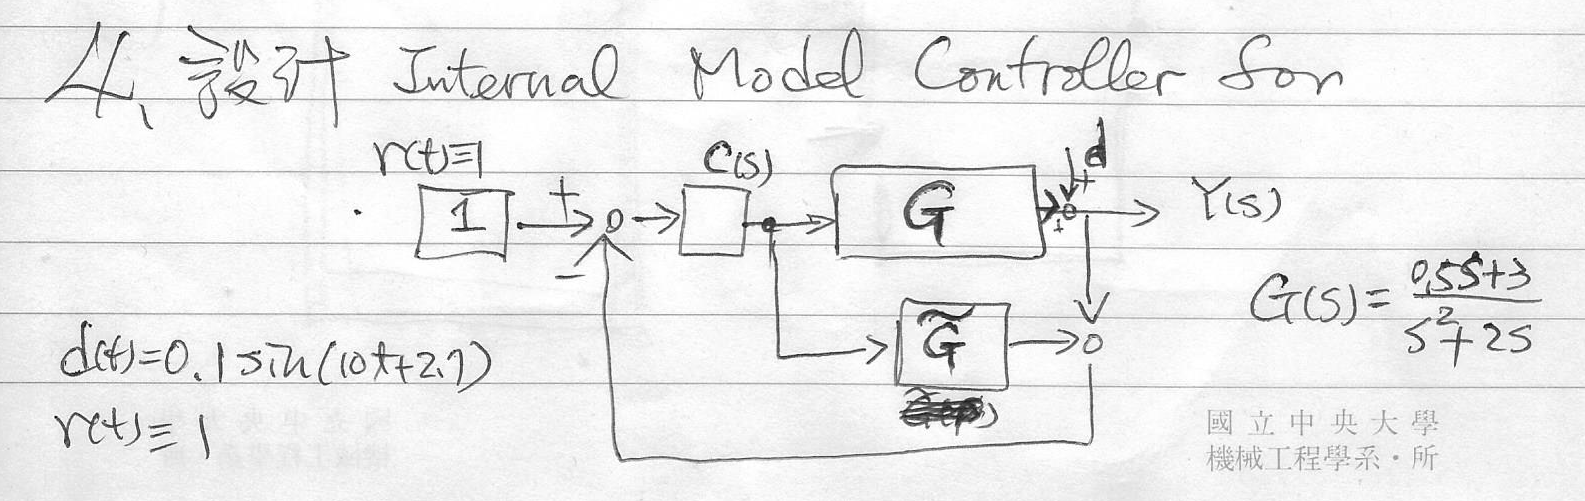 4、設計 Internal Model Controller for
r(t)≡1
C(s)
d
1
+
G
+
+
Y(s)
−
G(s)=(0.5s+3)/(s²+2s)
G̃
d(t)=0.1 sin(10t+2.7)
r(t)≡1
國立中央大學
機械工程學系・所